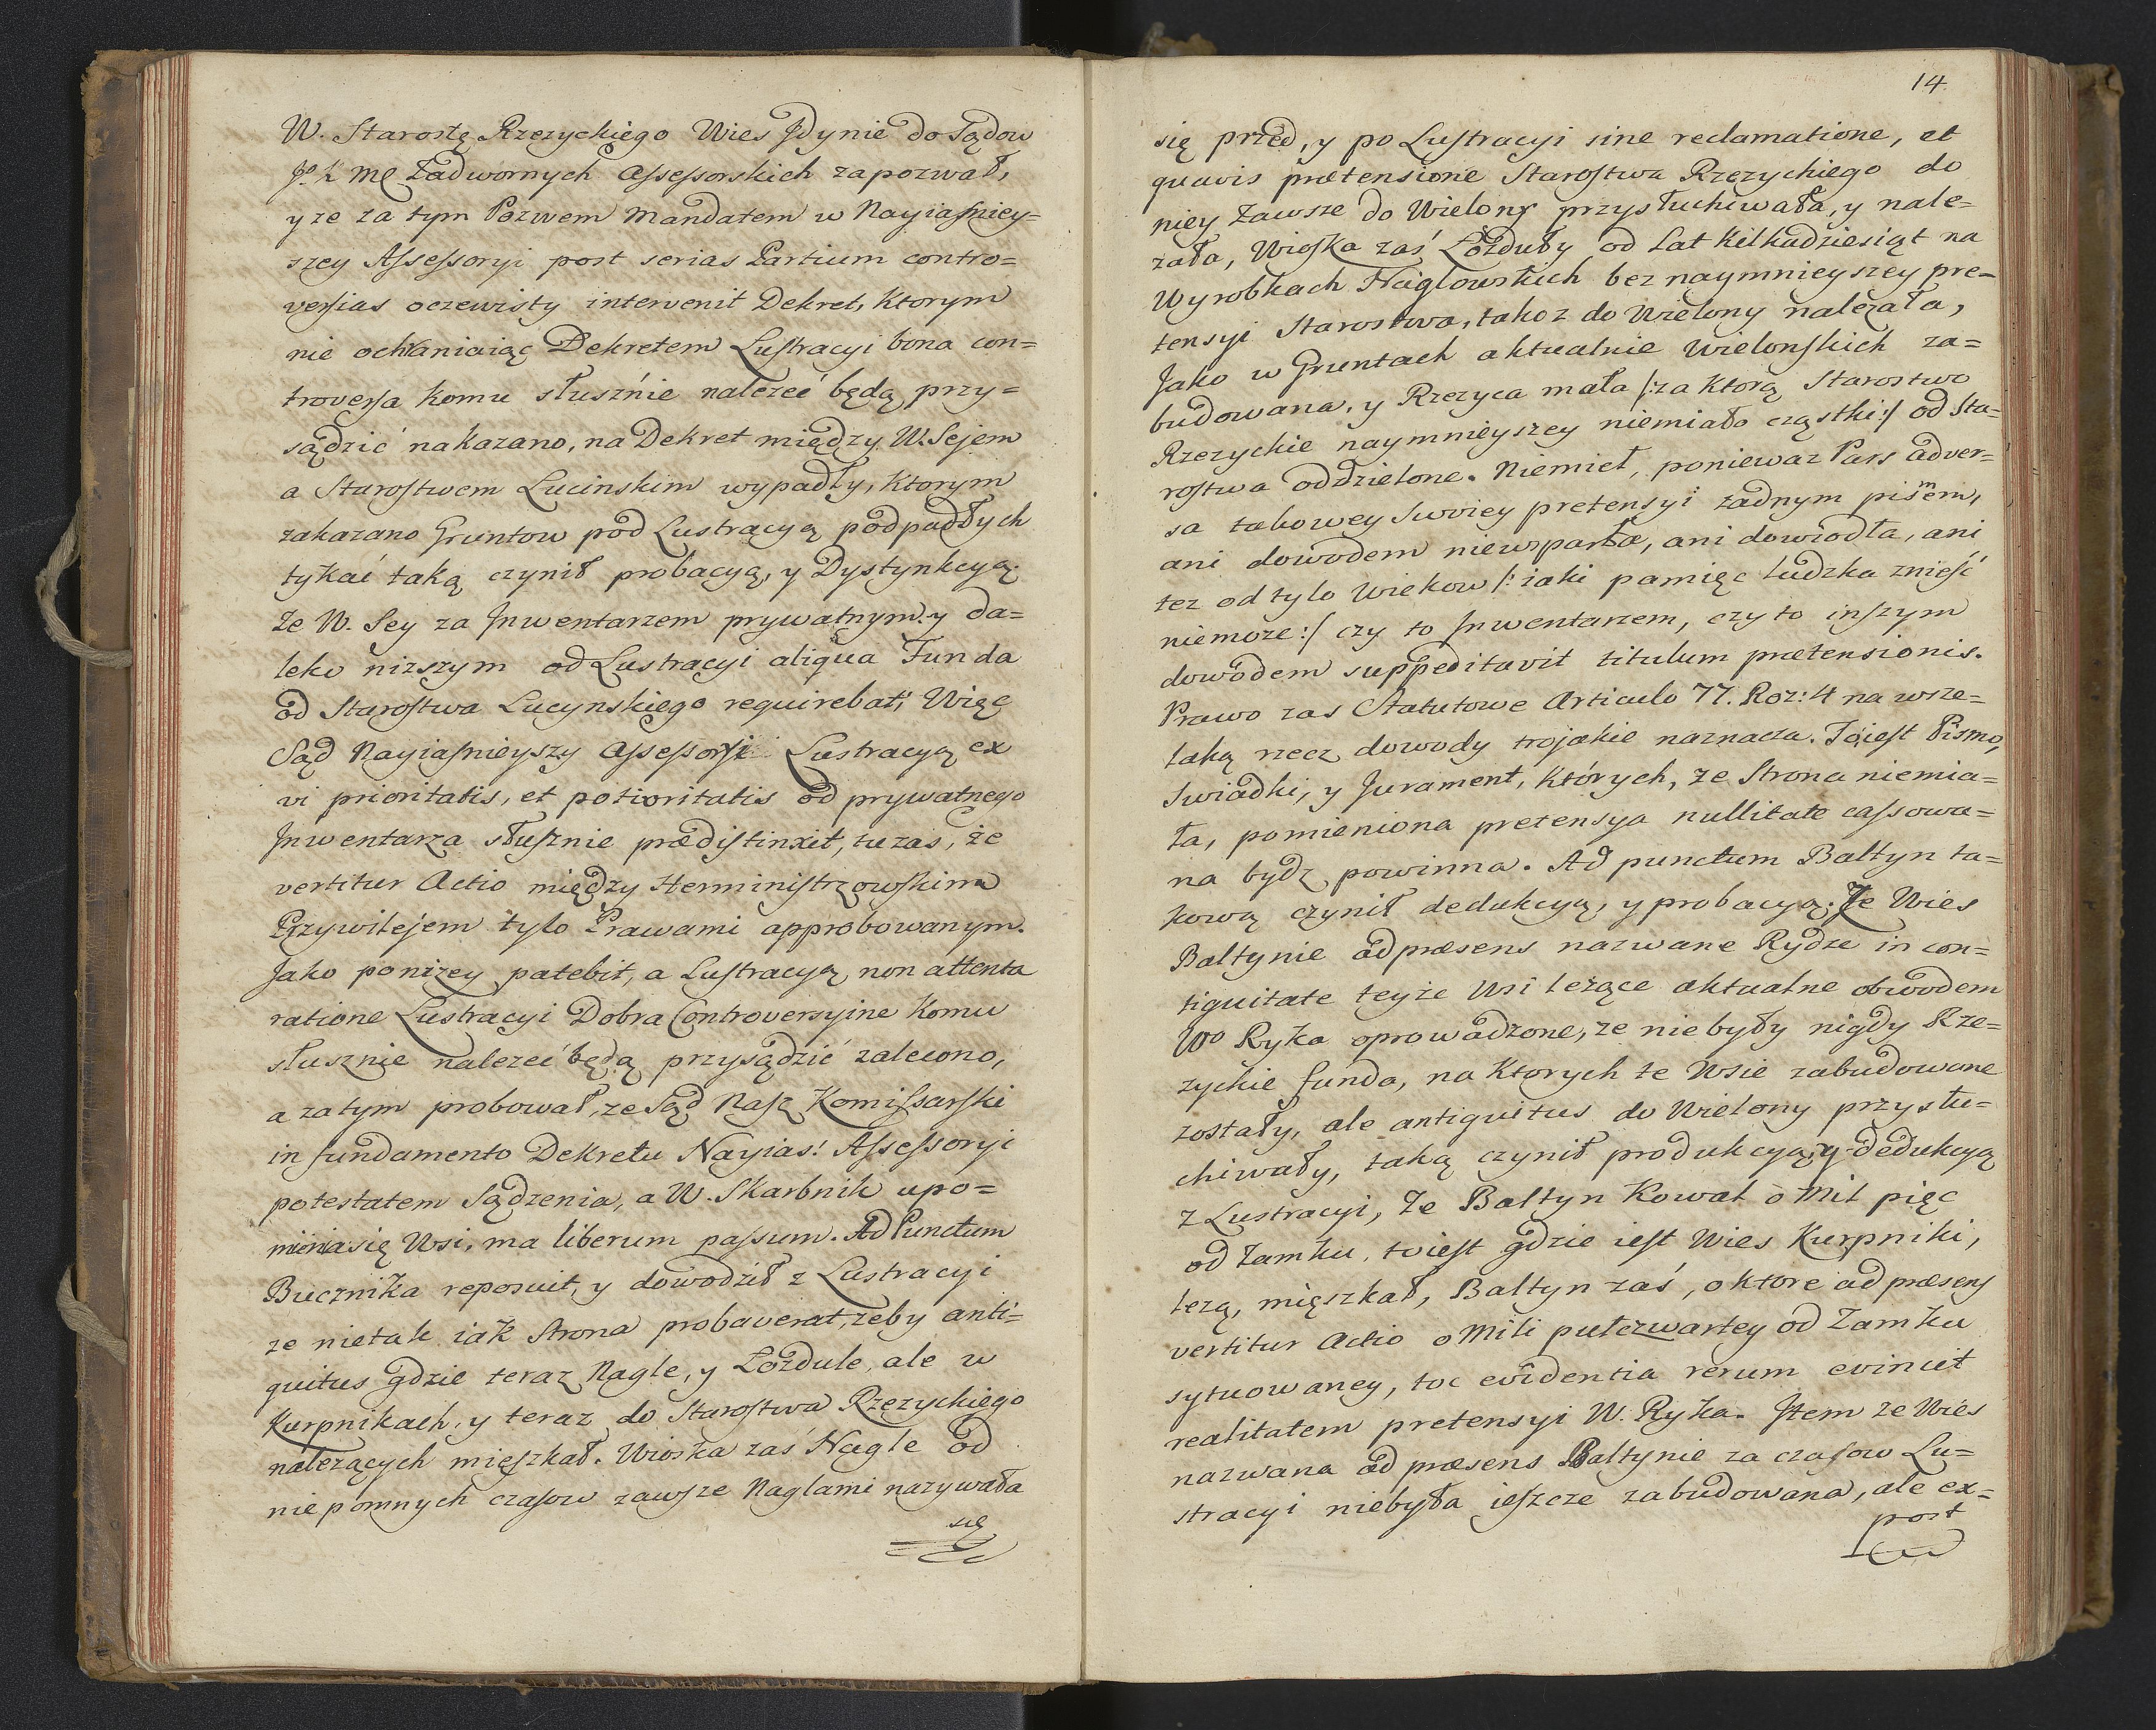 W. Starostę Rzezyckiego Wies Jdynie do Sądow
Jo. K Mę Zadwornych Aſseſsorskich zapozwał,
y ze za tym Pozwem Mandatem w Nayiaſniey=
szey Aſseſsoryi post serias Partium contro=
verſias oczewisty intervenit Dekret, Ktorym
nie ochraniaiąc Dekretem Luſtracyi bona con=
troverſa komu słusznie nalezeć będą przy=
sądzić nakazano, na Dekret między W. Sejem
a Staroſtwem Lucinskim wypadły, Ktorym
zakazano Gruntow pod Lustracyą podpadłych
tykać taką czynił probacyą, y Dystynkcyą.
Ze W. Sey za Jnwentarzem prywatnym y da=
leko nizszym od Lustracyi aliqua Funda
od Staroſtwa Lucynskiego requirebat; Więc
Sąd Nayiaſnieyszy Aſseſsoryi Lustracyą ex
vi prioritatis, et potioritatis od prywatnego
Jnwentarza słuſznie prædiſtinxit, tu zas, że
vertitur Actio między Herminiſtrzowſkim
Przywilejem tylo Prawami approbowanym.
Jako poniżey patebit, a Luſtracyą, non attenta
ratione Lustracyi Dobra Controversyine Komu
słusznie nalezeć będą przysądzić zalecono,
a zatym probował, ze Sąd Nasz Komiſsarſki
in fundamento Dekretu Nayias: Aſseſsoryi
potestatem Sądzenia, a W. Skarbnik upo=
mienia się Wsi, ma liberum paſsum. Ad Punctum
Bucznika reposuit, y dowodził z Lustracyi
ze nietak iak Strona probaverat, zeby anti=
quitus gdzie teraz Nagle, y Łozdule, ale w
Kurpnikach, y teraz do Staroſtwa Rzezyckiego
nalezących mięſzkał. Wioska zaś Nagle od
niepomnych czaſow zawſze Naglami nazywała
się
14
się przed, y po Luſtracyi sine reclamatione, et
quavis prætensione Staroſtwa Rzezyckiego do
niey Zawsze do Wielony przysłuchiwała, y nale=
zała, Wioſka zaś Łozduły od Lat Kilkadziesiąt na
Wyrobkach Naglowskich bez naymnieyszey pre=
tensyi Starostwa, takoz do Wielony należała,
Jako w Gruntach aktualnie Wielonſkich za=
budowana, y Rzezyca mała /:za Ktorą Starostwo
Rzezyckie naymnieyszey niemiało cząstki:/ od Sta=
rostwa oddzielone. Niemiet, poniewaz Pars adver=
sa takowey Swoiey pretensyi żadnym pisem,
ani dowodem niewsparła, ani dowiodła, ani
tez od tylo Wiekow /:iaki pamięc ludzka znieść
niemoze:/ czy to Jnwentarzem, czy to inſzym
dowodem suppeditavit titulum prætensionis.
Prawo zas Statutowe Articulo 77. Roz: 4 na wsze=
laką rzecz dowody trojakie naznacza. To iest Pismo,
Swiadki, y Jurament, Których, ze Strona niemia=
ła, pomieniona pretensya nullitate caſsowa=
na bydz powinna. Ad punctum Baltyn ta=
kową czynił dedukcyą, y probacyą. Ze Wies
Baltynie ad præsens nazwane Rydze in con=
tiguitate teyże Wsi leżące aktualne obwodem
Wo Ryka oprowadzone, ze niebyły nigdy Rze=
zyckie funda, na Ktorych te Wsie zabudowane
zostały, ale antiquitus do Wielony przysłu=
chiwały, taką czynił produkcyą, y dedukcyą
z Lustracyi, Ze Baltyn Kowal o Mil pięc
od Zamku, to ieſt gdzie ieſt Wies Kurpniki,
leżą, mięszkał, Baltyn zaś, o ktore ad præsens
vertitur Actio o Mili pułczwartey od Zamku
sytuowaney, toc evidentia rerum evincit
realitatem pretensyi W. Ryka. Jtem ze Wies
nazwana ad præsens Baltynie za czaſow Lu=
stracyi niebyła ieſzcze zabudowana, ale ex=
post